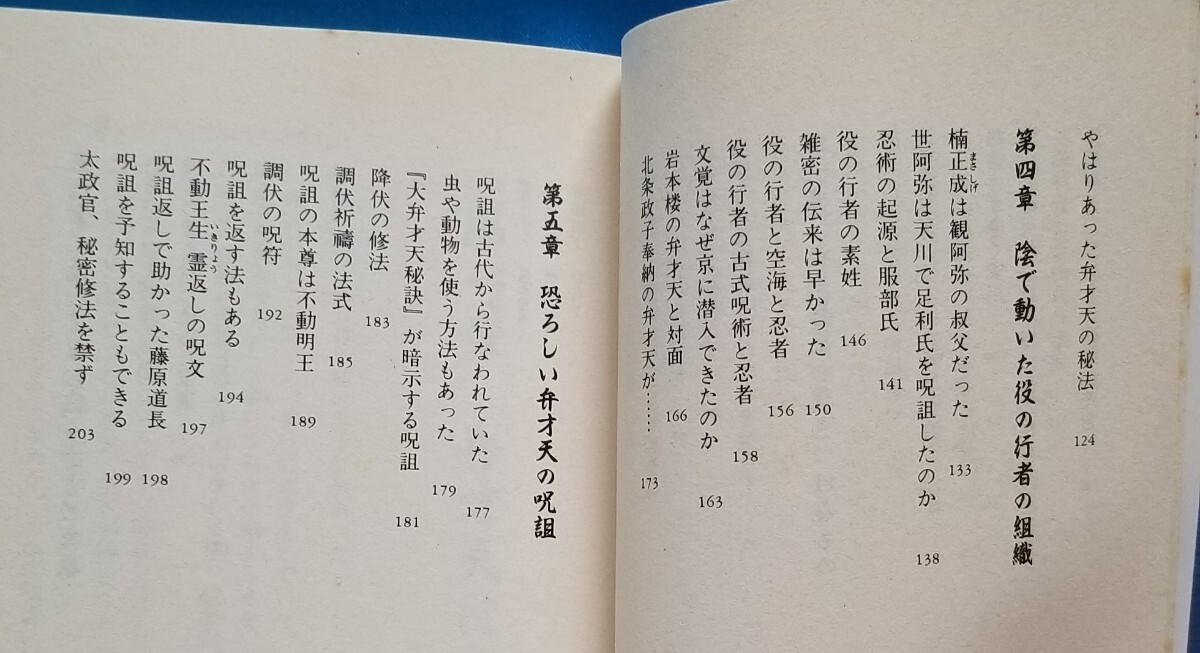 やはりあった弁才天の秘法 124
第四章 陰で動いた役の行者の組織
楠正成は観阿弥の叔父だった 133
まさしげ
世阿弥は天川で足利氏を呪詛したのか 138
忍術の起源と服部氏 141
役の行者の素姓 146
雑密の伝来は早かった 150
役の行者と空海と忍者 156
役の行者の古式呪術と忍者 158
文覚はなぜ京に潜入できたのか 163
岩本楼の弁才天と対面 166
北条政子奉納の弁才天が…… 173
第五章 恐ろしい弁才天の呪詛
呪詛は古代から行なわれていた 177
虫や動物を使う方法もあった 179
『大弁才天秘訣』が暗示する呪詛 181
降伏の修法 183
調伏祈禱の法式 185
呪詛の本尊は不動明王 189
調伏の呪符 192
呪詛を返す法もある 194
不動王生霊返しの呪文 197
いきりょう
呪詛返しで助かった藤原道長 198
呪詛を予知することもできる 199
太政官、秘密修法を禁ず 203